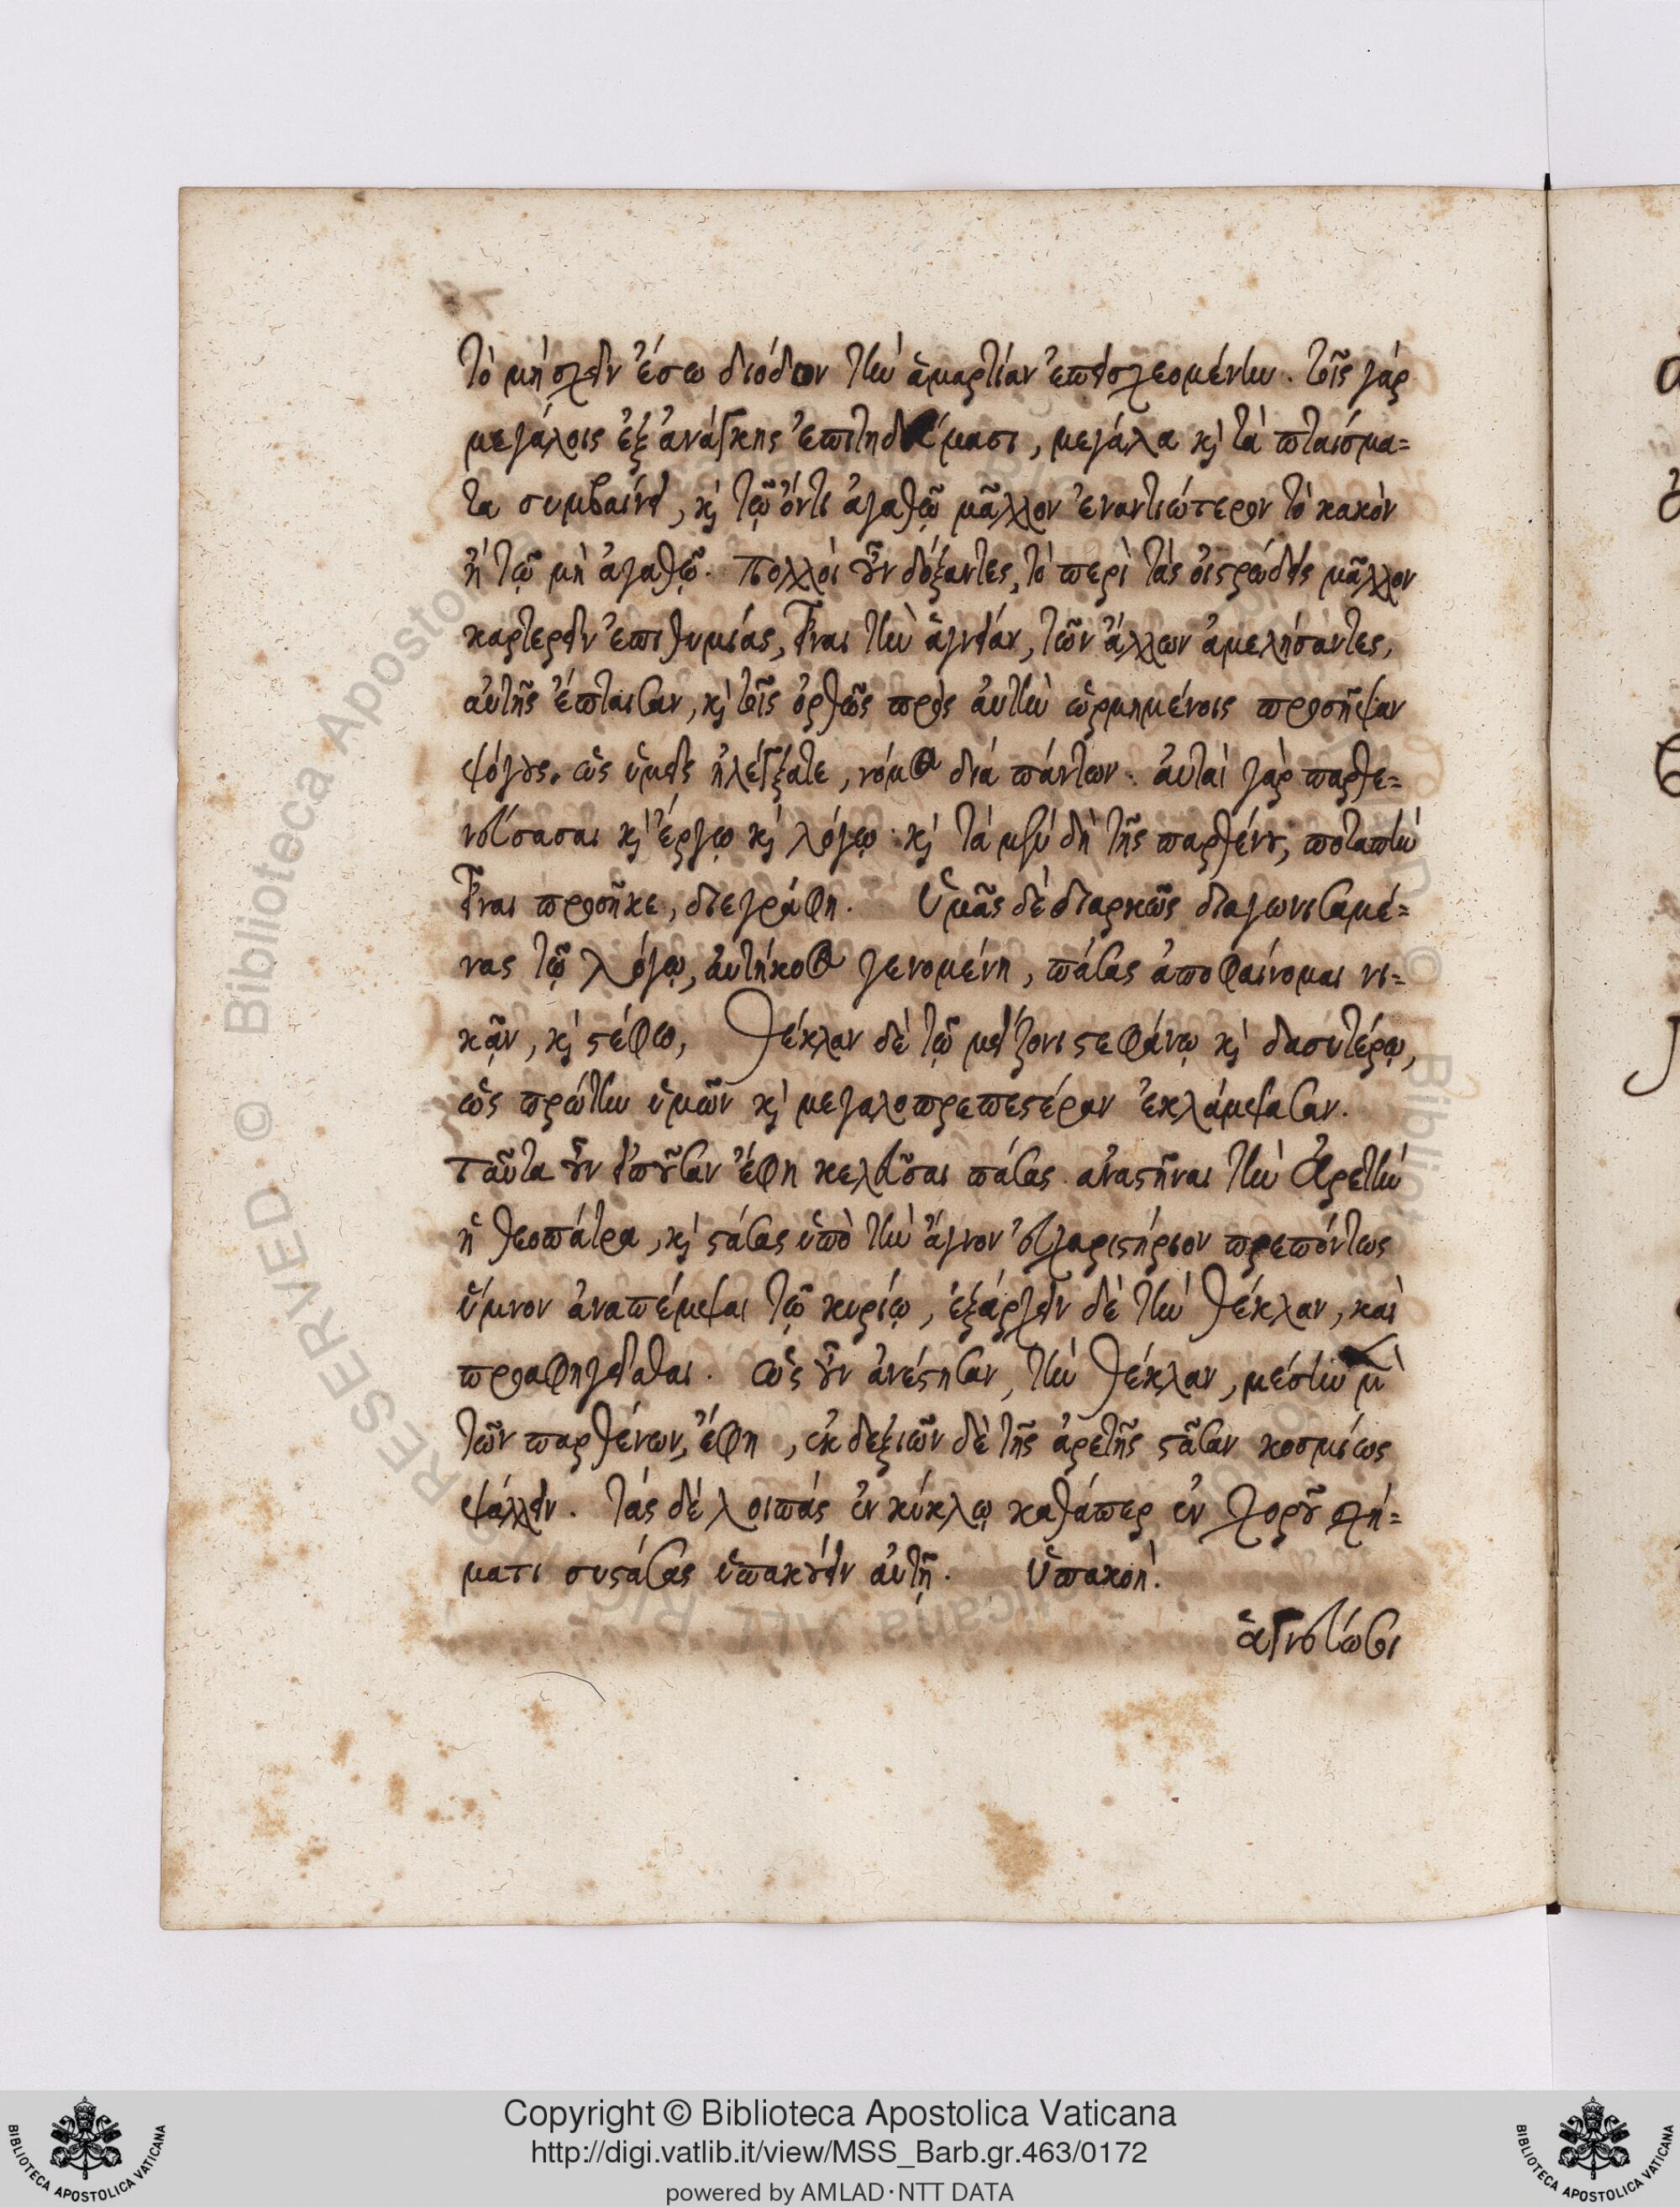 τὸ μὴ σχεῖν ἔσω δίοδον τὴν ἁμαρτίαν ἐπεισχεομένην. τοῖς γάρ
μεγάλοις ἐξ ἀνάγκης ἐπιτηδεύμασι, μεγάλα κὶ τὰ πταίσμα=
τα συμβαίνει, κὶ τῷ ὄντι ἀγαθῷ μᾶλλον ἐναντιώτερον τὸ κακὸν
ἢ τῷ μὴ ἀγαθῷ. Πολλοὶ οὖν δόξαντες, τὸ περὶ τὰς οἰστρώδεις μᾶλλον
καρτερεῖν ἐπιθυμίας, εἶναι τὴν ἁγνείαν, τῶν ἄλλων ἀμελήσαντες,
αὐτῆς ἔπταισαν, κὶ τοῖς ὀρθῶς πρὸς αὐτὴν ὡρμημένοις προσῆψαν
ψόγους. ὡς ὑμεῖς ἠλέγξατε, νόμος διὰ πάντων. αὐταὶ γὰρ παρθε=
νεύσασαι κὶ ἔργῳ κὶ λόγῳ. κὶ τὰ μὲν δὴ τῆς παρθένου, ποταπὴν
εἶναι προσῆκε, διεγράφη. Ὑμᾶς δὲ διαρκῶς διαγωνισαμέ=
νας τῷ λόγῳ, αὐτήκοος γενομένη, πάσας ἀποφαίνομαι νι=
κᾷν, κὶ στέφω, Θέκλαν δὲ τῷ μείζονι στεφάνῳ κὶ δασυτέρῳ,
ὡς πρώτην ὑμῶν κὶ μεγαλοπρεπεστέραν ἐκλάμψασαν.
Ταῦτα οὖν εἰποῦσαν ἔφη κελεῦσαι πάσας ἀναστῆναι τὴν Ἀρετὴν
ἡ Θεοπάτρα, κὶ στάσας ὑπὸ τὴν ἄγνον εὐχαριστήριον πρεπόντως
ὕμνον ἀναπέμψαι τῷ κυρίῳ, ἐξάρχειν δὲ τὴν Θέκλαν, καὶ
προαφηγεῖσθαι. ὡς οὖν ἀνέστησαν, τὴν Θέκλαν, μέσην μὲν
τῶν παρθένων, ἔφη, ἐκ δεξιῶν δὲ τῆς ἀρετῆς στᾶσαν κοσμίως
ψάλλειν. τὰς δὲ λοιπάς ἐν κύκλῳ καθάπερ ἐν χοροῦ σχή=
ματι συστάσας ὑπακούειν αὐτῇ. Ὑπακοή.
ἁγνεύω σοι
Copyright © Biblioteca Apostolica Vaticana
http://digi.vatlib.it/view/MSS_Barb.gr.463/0172
powered by AMLAD·NTT DATA